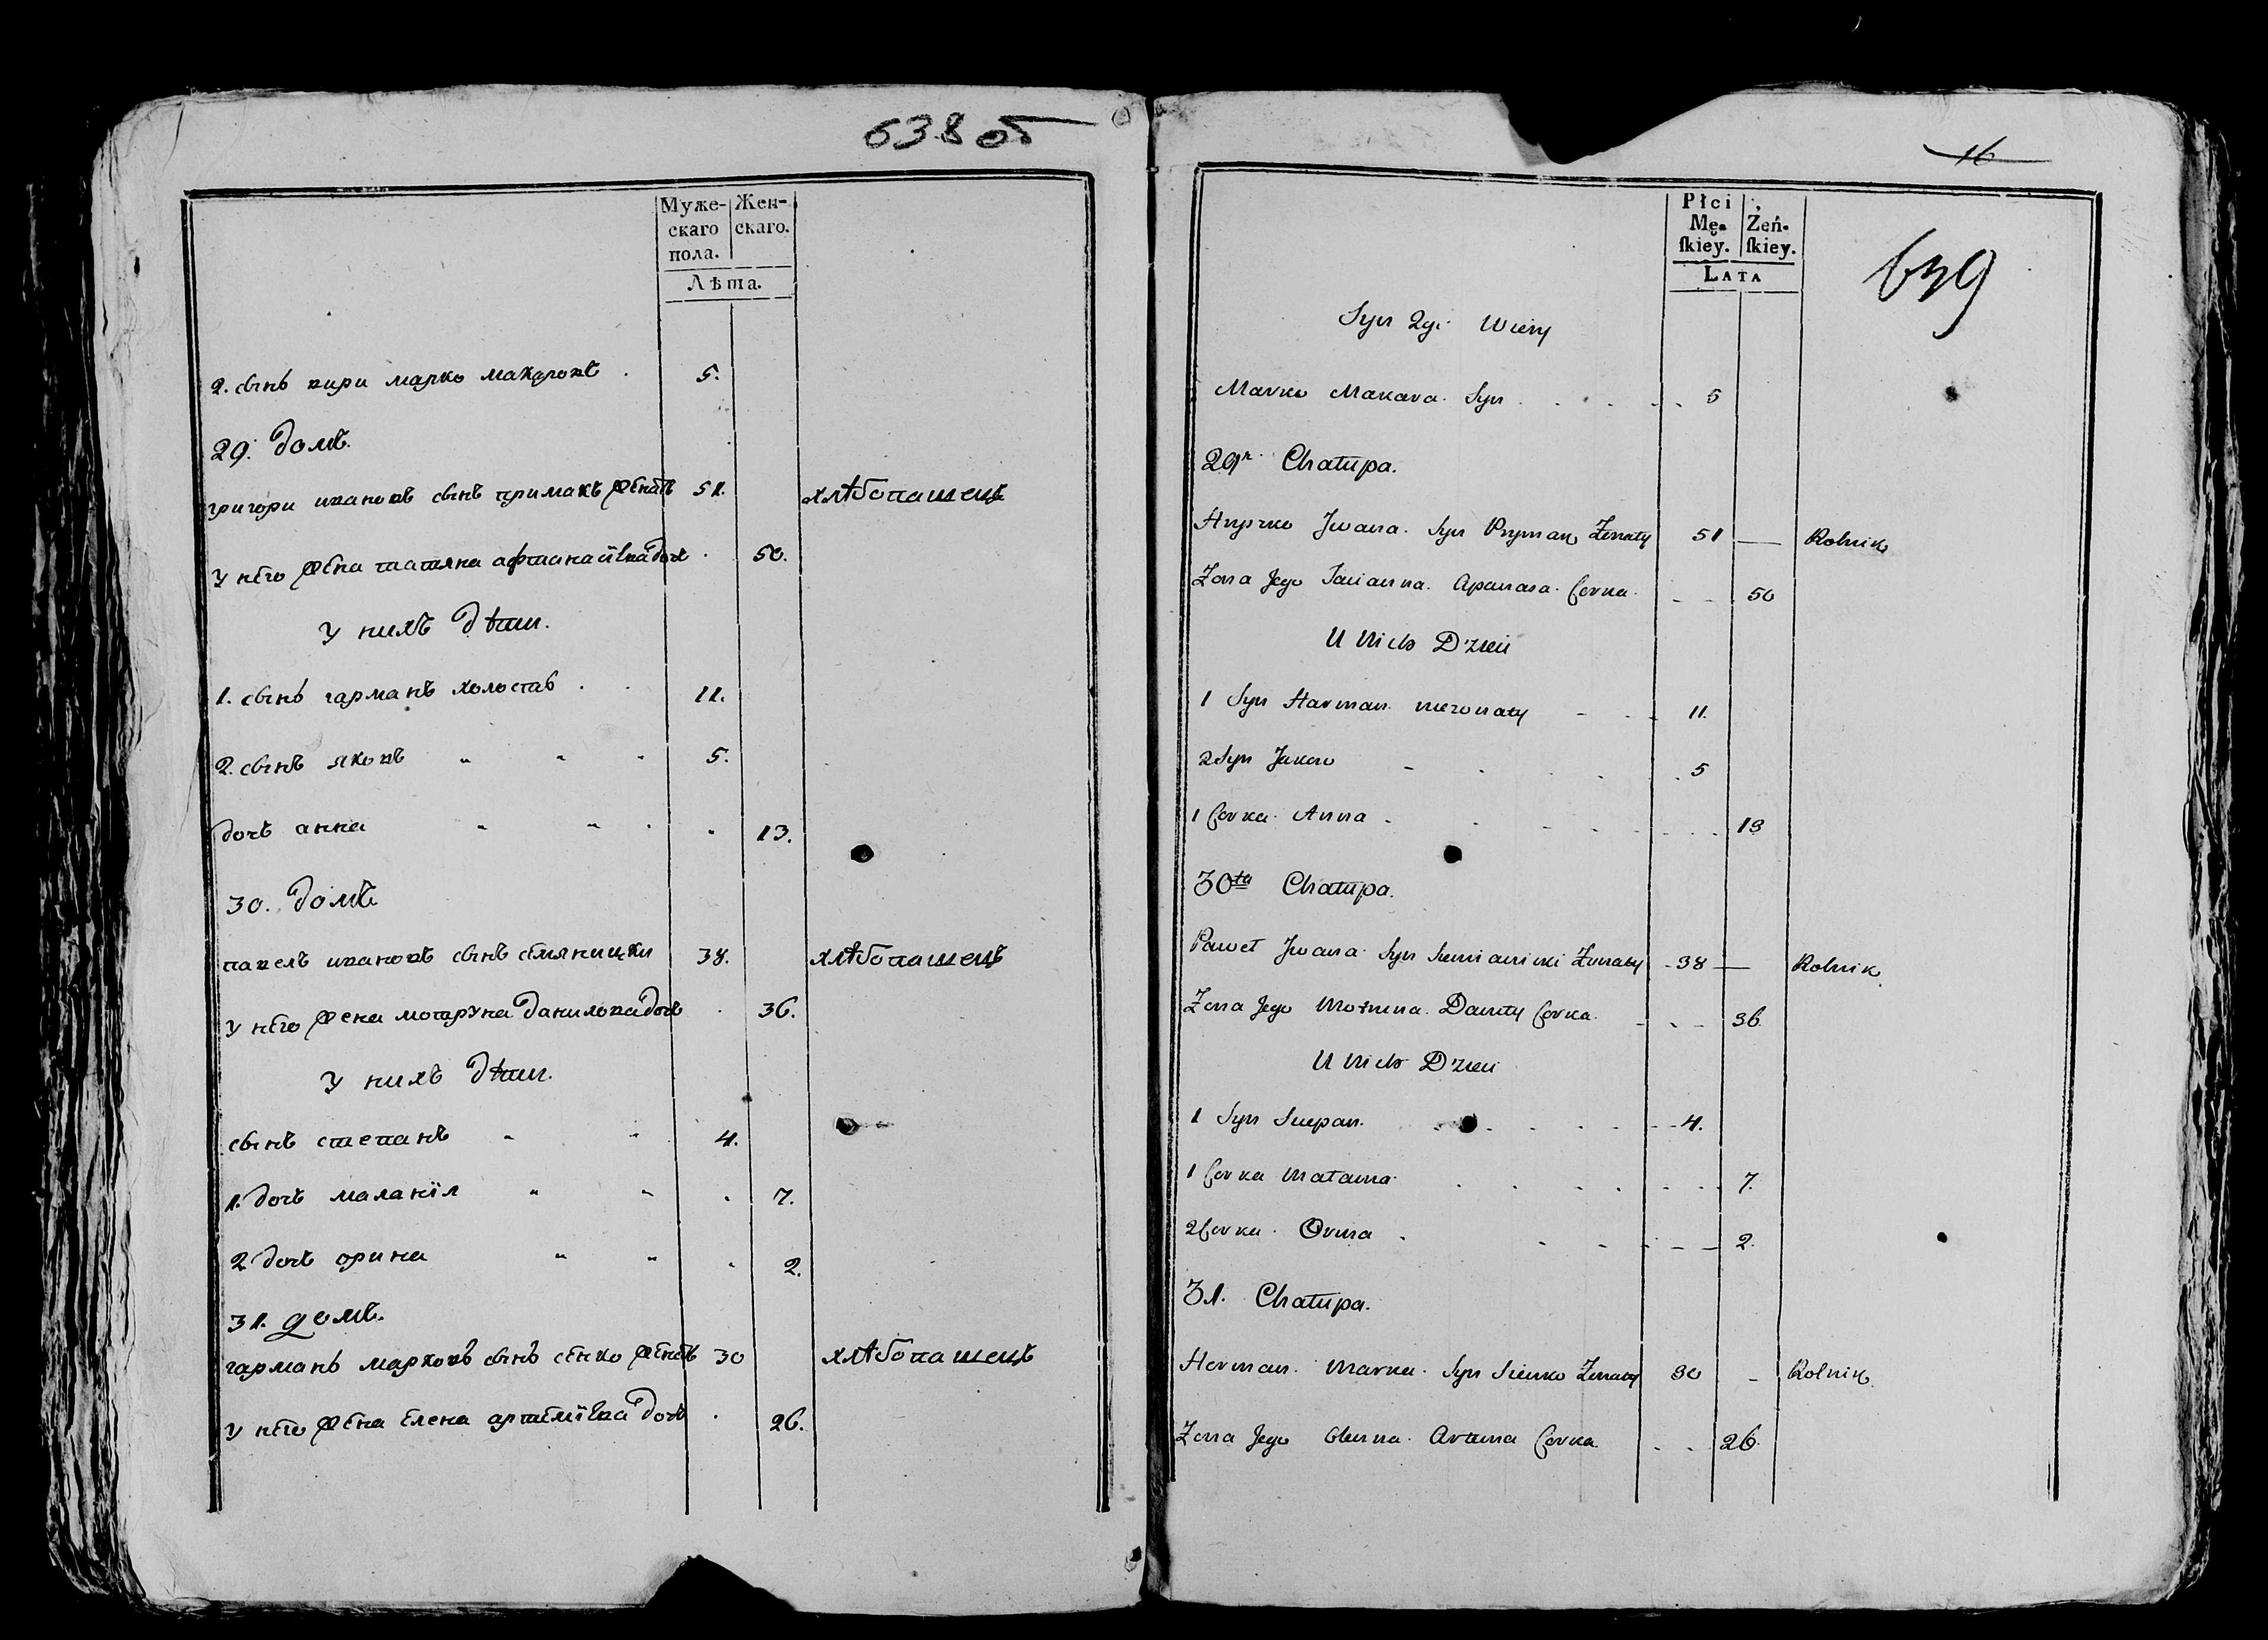 638 об
Муже-
скаго
пола.
Жен-
скаго.
Лѣта.
2. сынъ вири марко макаровъ . 5.
29. домъ.
григори ивановъ сынъ примакъ женатъ 51. хлѣбопашець
у него жена татяна афтанаиѣва дочь . 50.
у нихъ дѣти.
1. сынъ гарманъ холостъ . . 11.
2. сынъ яковъ " " " 5.
дочь анна " " . . 13.
30. домъ
павелъ ивановъ сынъ семяницки 38. хлѣбопашець
у него жена мотруна данилова дочь . 36.
у нихъ дѣти.
сынъ степанъ " " 4.
1. дочь маланія " " . 7.
2 дочь орина " " . 2.
31. домъ.
гарманъ марковъ сынъ сенко женатъ 30 хлѣбопашець
у него жена елена артеміѣва дочь . 26.
16
639
Płci
Mę-
ſkiey.
Żeń-
ſkiey.
LATA
Syn 2gi Wiery
Marko Makara Syn . . . . . 5
29a Chałupa.
Hryrko Jwana Syn Prymak Żonaty 51 — Rolnik
Żona Jego Taciana Apanasa Corka - - 50
U Nich Dzieci
1 Syn Harman niezonaty - . - 11.
2 Syn Jakow - . . . . 5
1 Corka Anna . . - . . . . 13
30ta Chałupa.
Paweł Jwana Syn Siemianicki Żonaty - 38 — Rolnik
Żona Jego Motruna Daniły Corka - - - 36.
U Nich Dzieci
1 Syn Sciepan. . . . . - - 4.
1 Corka Małania . . . . - . . 7.
2 Corka Oryna . . - . - - 2.
31. Chałupa.
Herman Marka Syn Sienko Żonaty 30 - Rolnik
Żona Jego Olena Artema Corka . . 26.